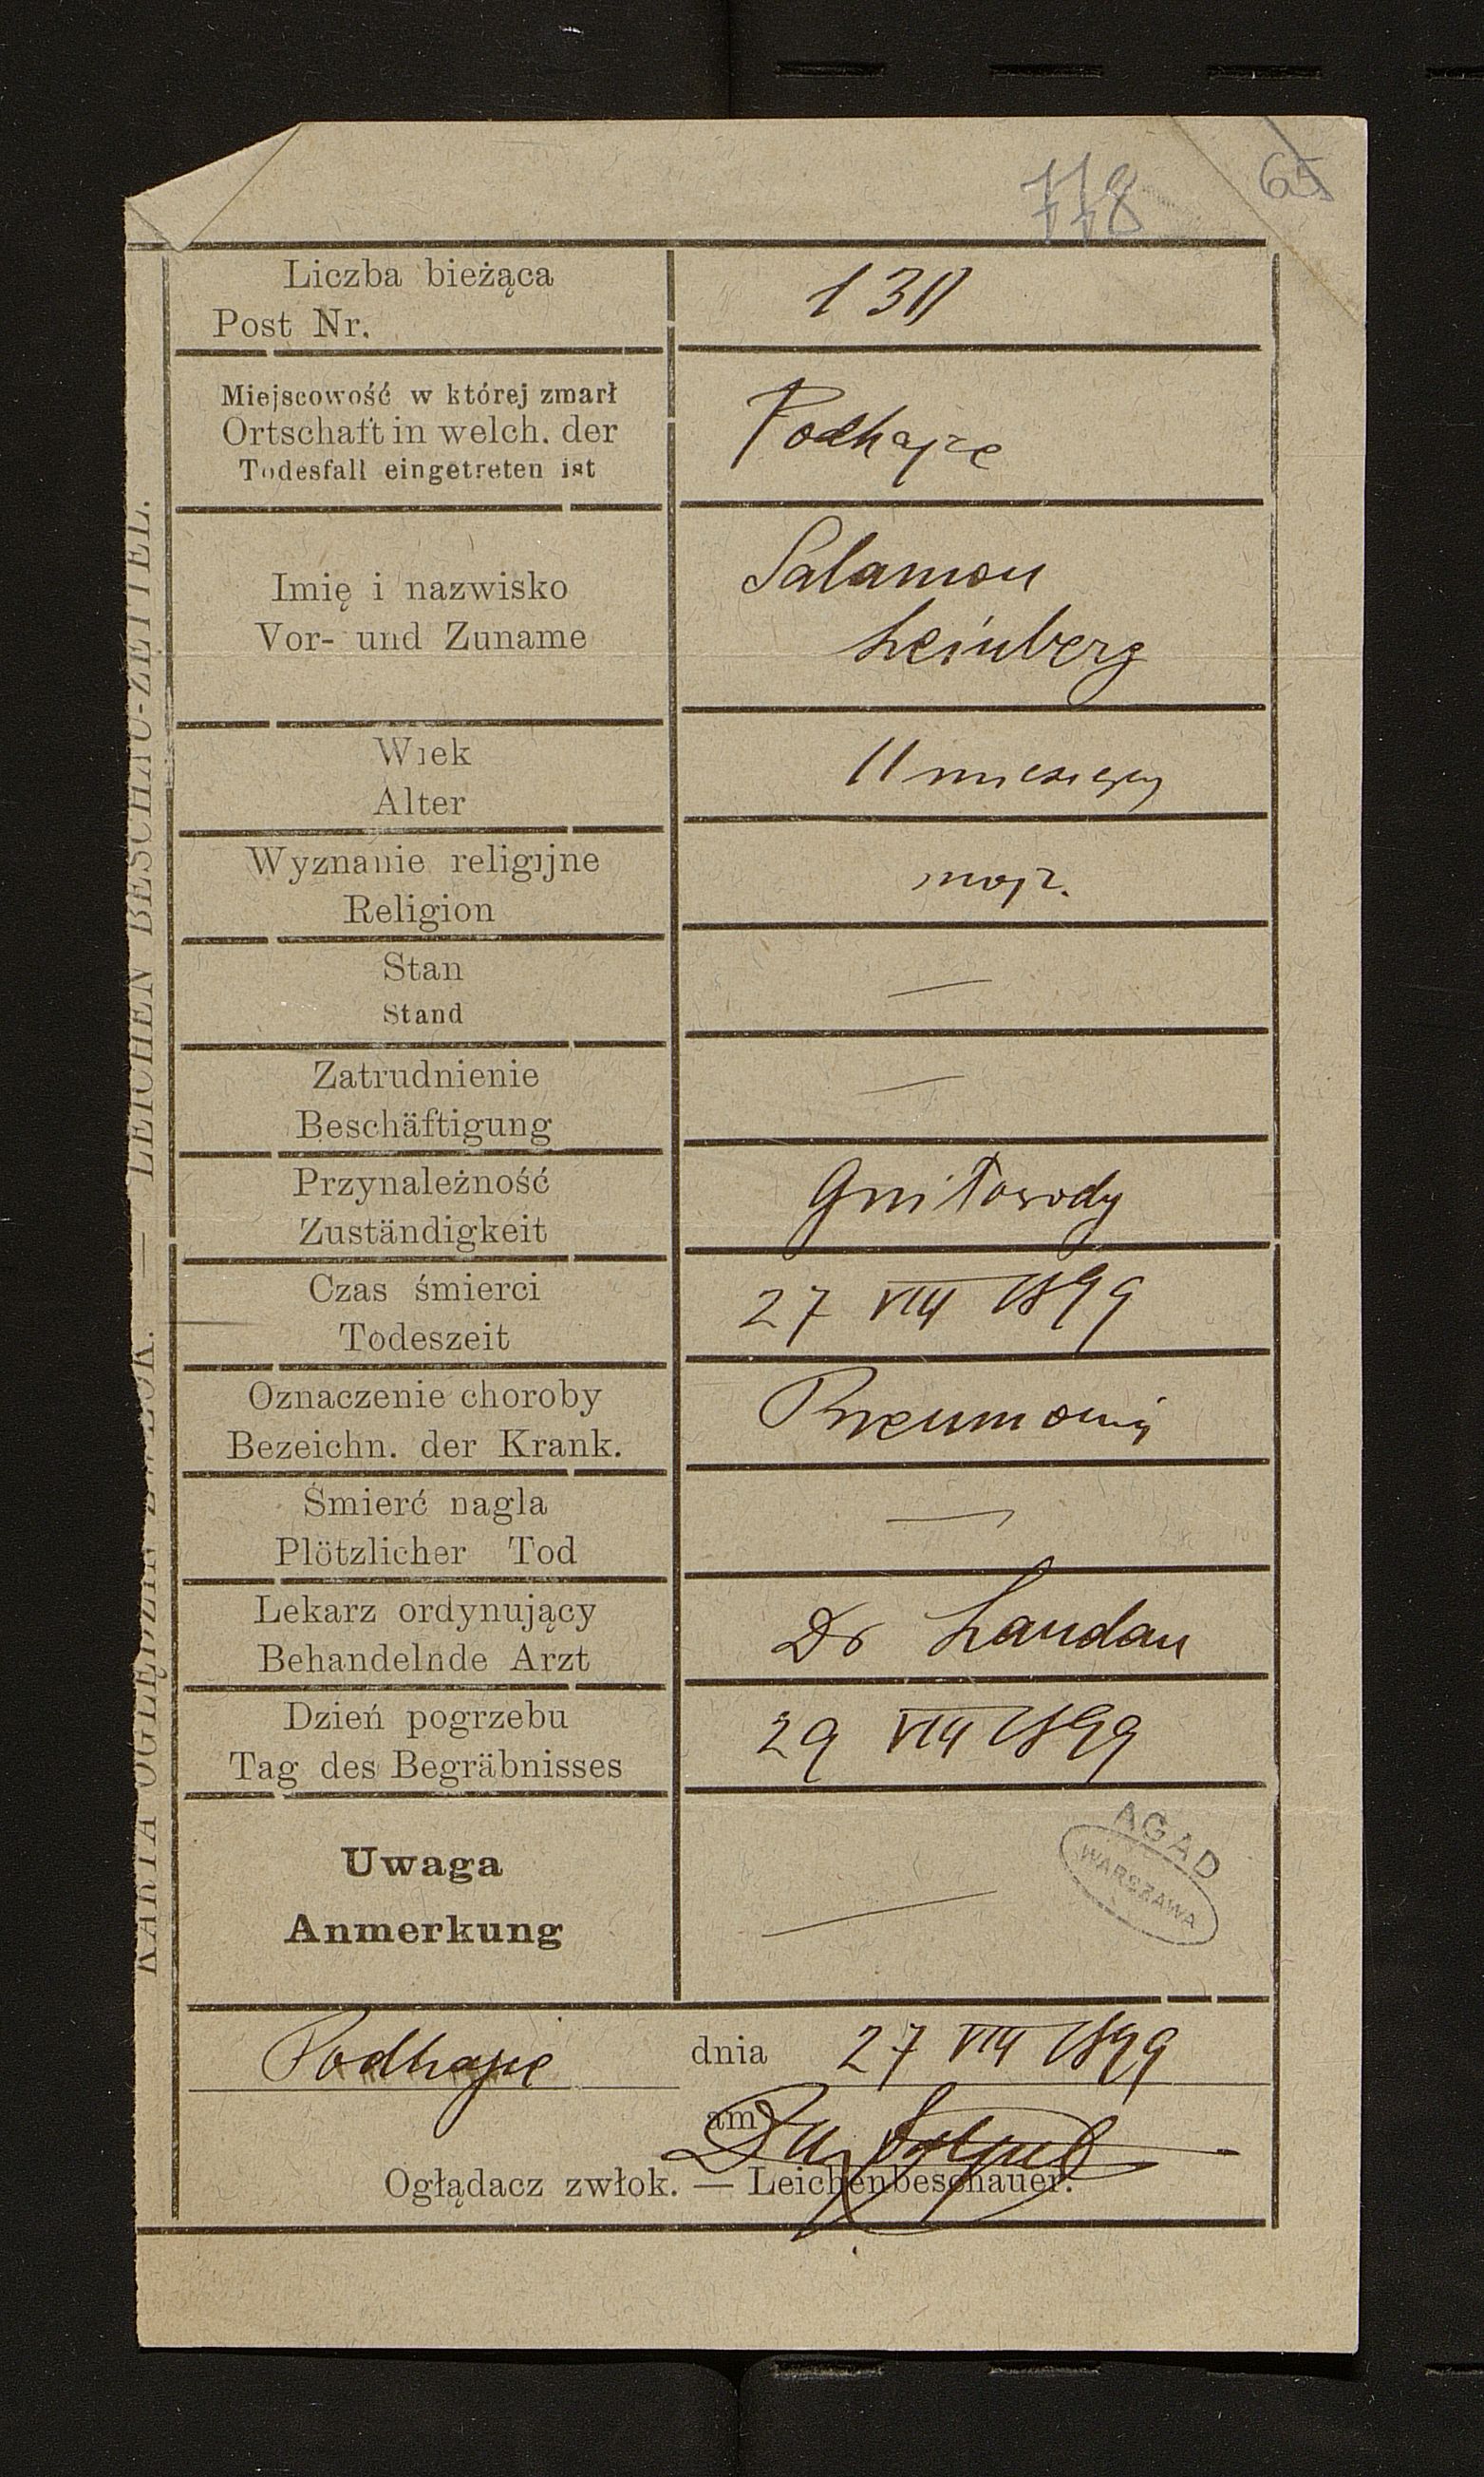 778
65
Liczba bieżąca
Post Nr.
Miejscowość w której zmarł
Ortschaft in welch. der
Todesfall eingetreten ist
Podhajce
Imię i nazwisko
Vor- und Zuname
Salamon
Leinberg
Wiek
Alter
11 miesięcy
Wyznanie religijne
Religion
mojż.
Stan
Stand
—
Zatrudnienie
Beschäftigung
—
Przynależność
Zuständigkeit
Gniłowody
Czas śmierci
Todeszeit
27 VIII 1899
Oznaczenie choroby
Bezeichn. der Krank.
Pneumonia
Śmierć nagla
Plötzlicher Tod
—
Lekarz ordynujący
Behandelnde Arzt
Dr Landau
Dzień pogrzebu
Tag des Begräbnisses
29 VIII 1899
Uwaga
Anmerkung
—
AGAD
WARSZAWA
Podhajce dnia 27 VIII 1899
am
Oglądacz zwłok. — Leichenbeschauer.
KARTA OGLĘDZIN ZWŁOK. — LEICHEN BESCHAU-ZETTEL.